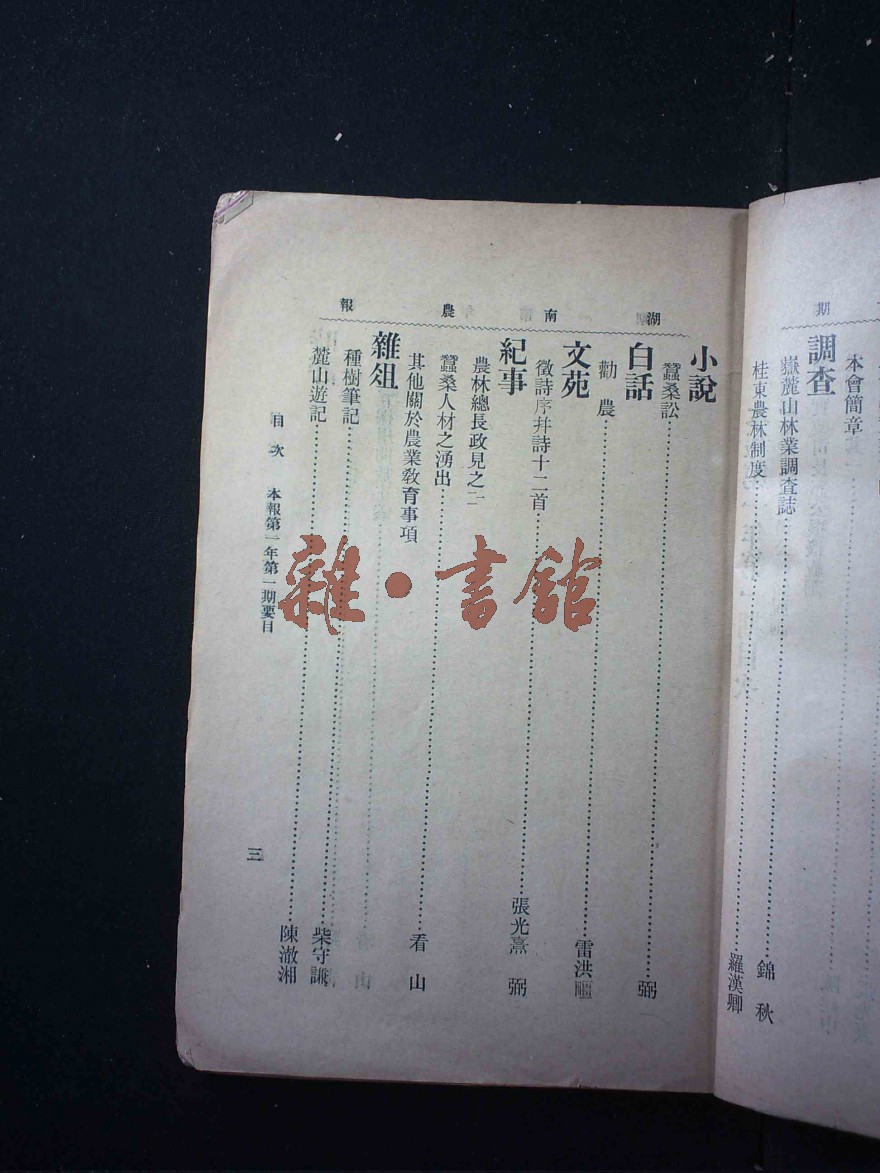 期
本會簡章
調查
嶽麓山林業調查誌 錦秋
桂東農林制度 羅漢卿
湖南農報
小說
蠶桑訟 弼
白話
勸農 雷洪
文苑
徵詩序幷詩十二首 張光熹 弼
紀事
農林總長政見之二
蠶桑人材之湧出 看山
其他關於農業教育事項
雜俎
種樹筆記 柴守謙
麓山遊記 陳澈湘
目次 本報第一年第一期要目
三
雜·書館